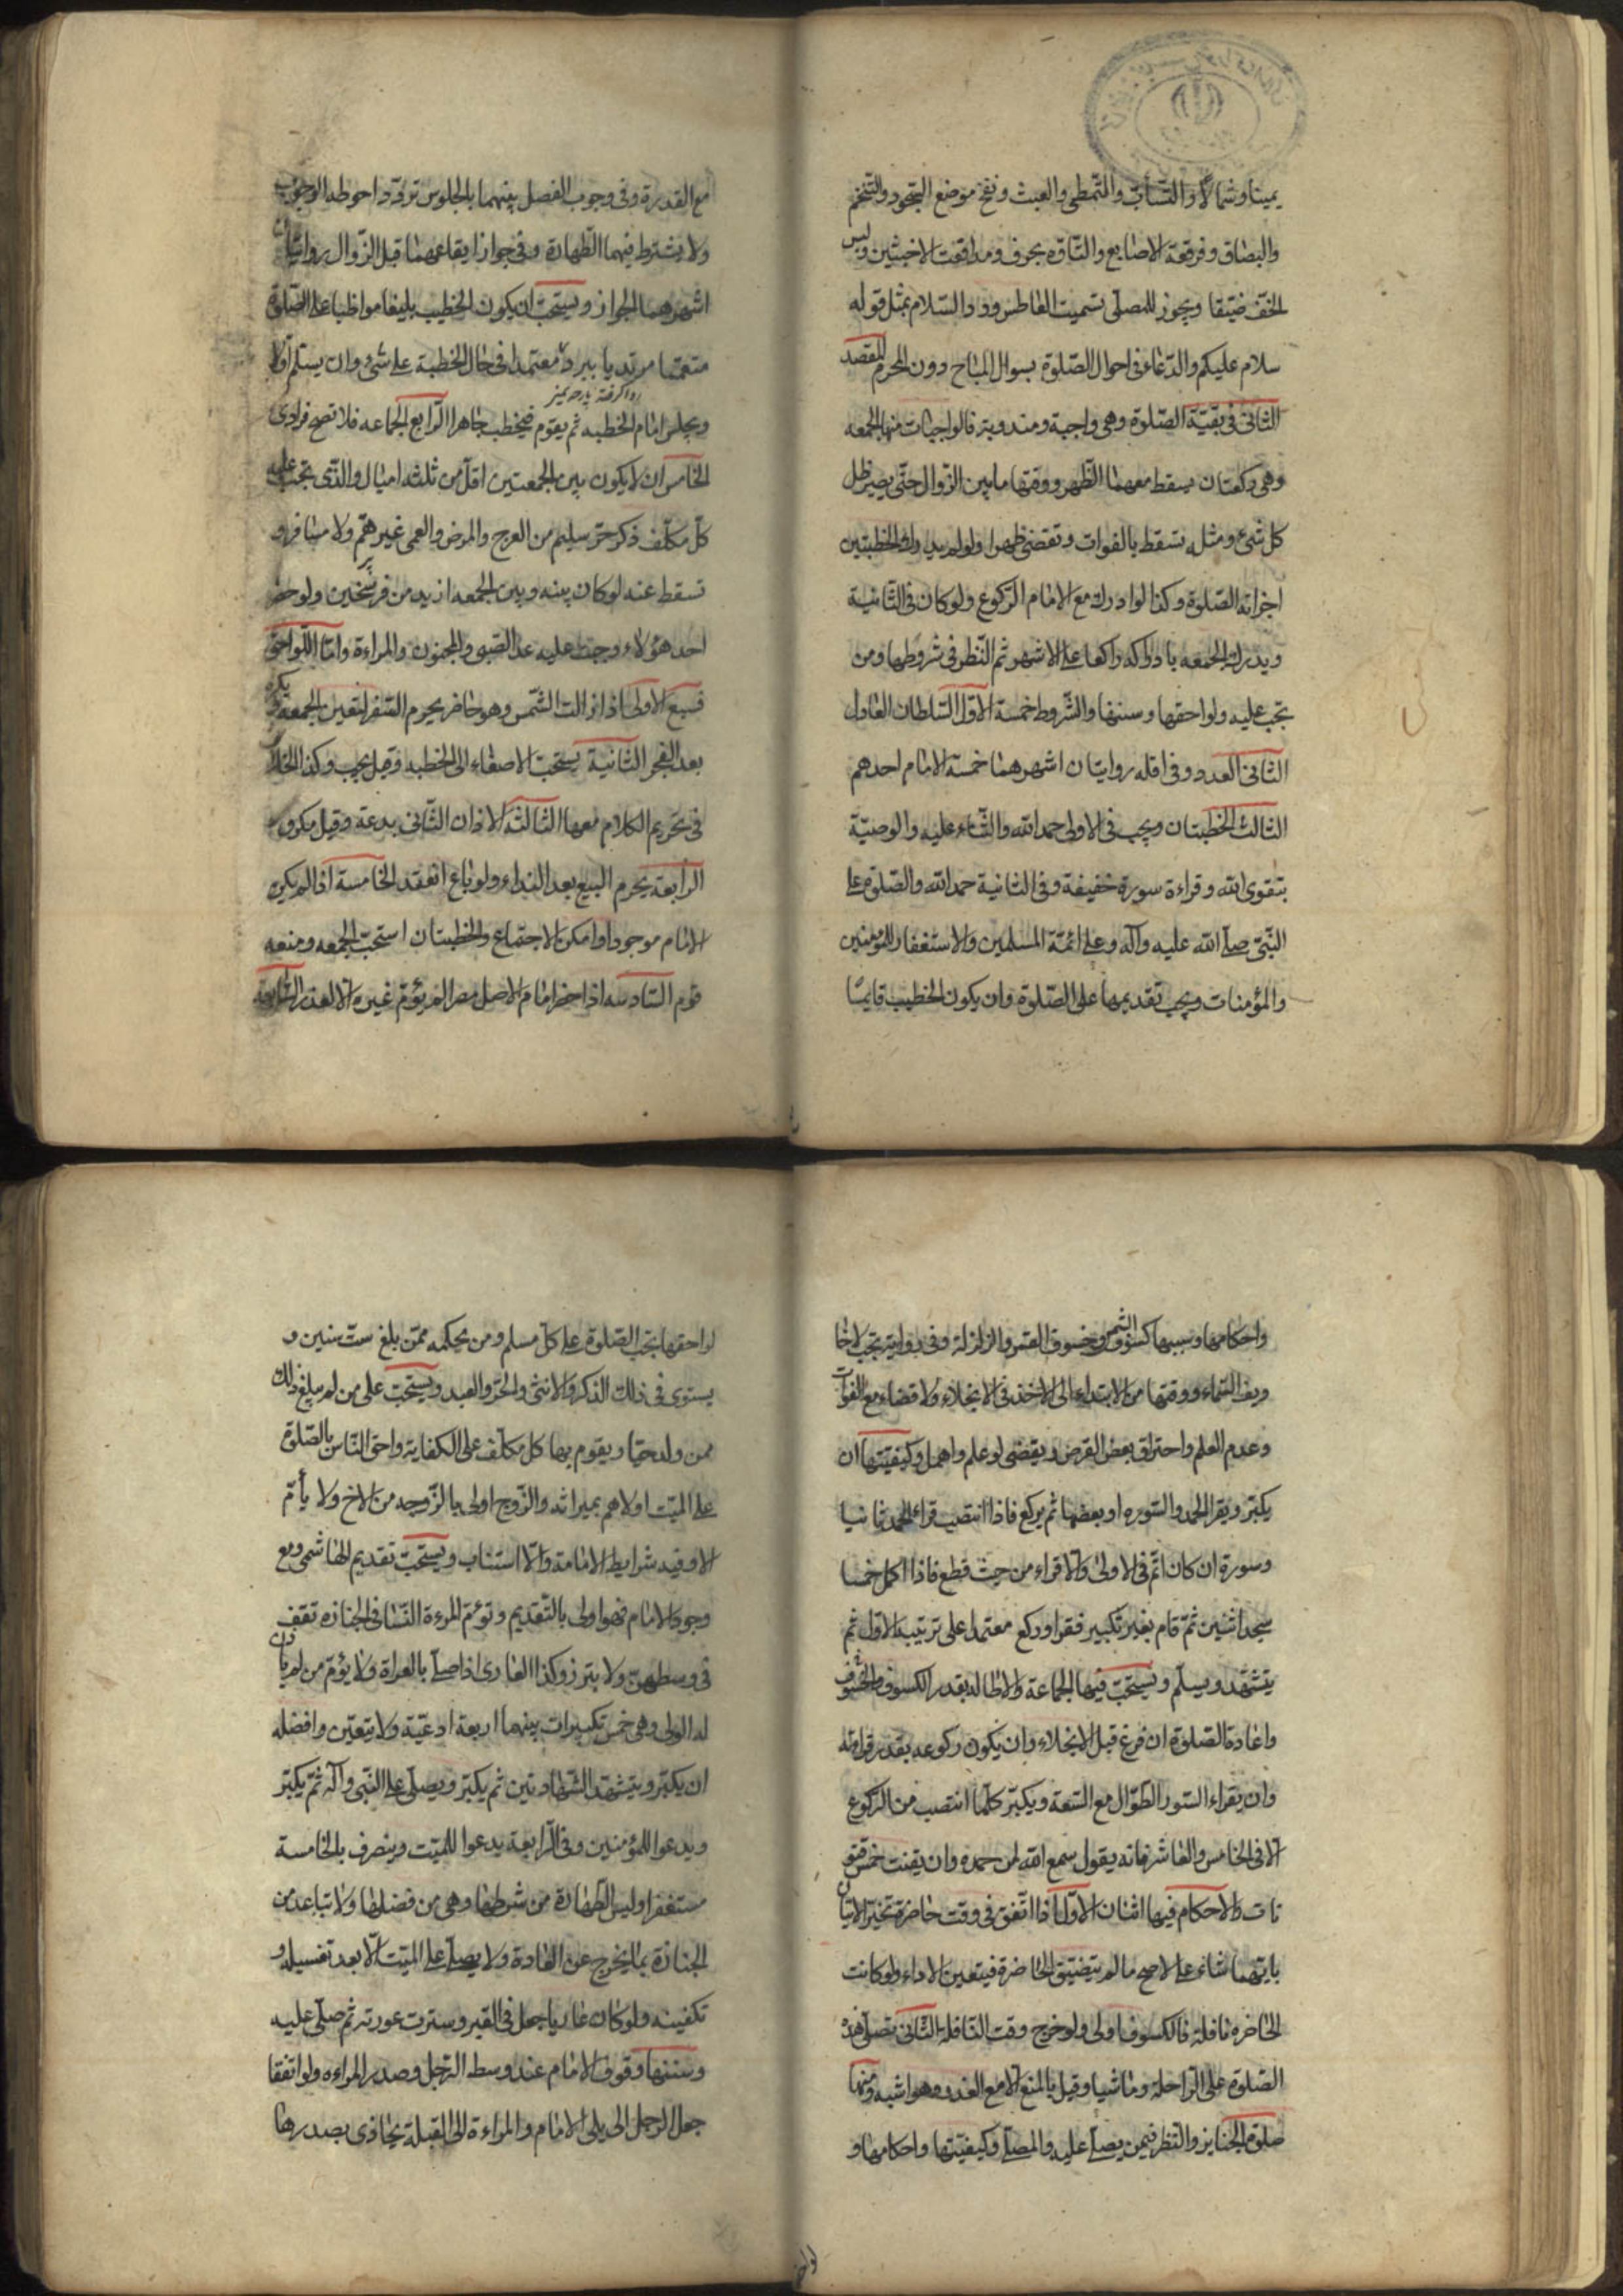 يمينا وشمالا والتثأب والتمطى والعبث ونفخ موضع السجود والتنخم
والبصاق وفرقعة الاصابع والتأوه بحرف ومدافعة الاخبثين ولبس
الخف ضيقا ويجوز للمصلى تسميت العاطس ورد السلام بمثل قوله
سلام عليكم والدعاء فى احوال الصلوة بسوال المباح دون المحرم المقصد
الثانى فى بقية الصلوة وهى واجبة ومندوبة فالواجبات منها الجمعه
وهى ركعتان يسقط معهما الظهر ووقتها مابين الزوال حتى يصير ظل
كل شىء ومثله تسقط بالفوات وتقضى ظهرا ولو لم يدرك الخطبتين
اجزاته الصلوة وكذا لو ادرك مع الامام الركوع ولو كان فى الثانية
ويدرك الجمعه بادراكه راكعا على الاشهر ثم النظر فى شروطها ومن
تجب عليه ولواحقها وسننها والشروط خمسة الاول السلطان العادل
الثانى العدد وفى اقله روايتان اشهرهما خمسة الامام احدهم
الثالث الخطبتان ويجب فى الاولى حمد الله والثناء عليه والوصية
بتقوى الله وقراءة سورة خفيفة وفى الثانية حمد الله والصلوة على
النبى صلى الله عليه وآله وعلى ائمة المسلمين والاستغفار للمؤمنين
والمؤمنات ويجب تقديمها على الصلوة وان يكون الخطيب قايما
مع القدرة وفى وجوب الفصل بينهما بالجلوس تردد احوطه الوجوب
ولا يشترط فيهما الطهارة وفى جواز ايقاعهما قبل الزوال روايتان
اشهرهما الجواز ويستحب ان يكون الخطيب بليغا مواظبا على الصلوة
متعمما مرتديا ببرد معتمدا فى حال الخطبة على شىء وان يسلم اولا
ويجلس امام الخطبه ثم يقوم فيخطب جاهرا الرابع الجماعه فلا تصح فرادى
الخامس ان لا يكون بين الجمعتين اقل من ثلثه اميال والذى تجب عليه
كل مكلف ذكر حر سليم من العرج والمرض والعمى غير هم ولا مسافر و
تسقط عنه لو كان بينه وبين الجمعه ازيد من فرسخين ولو حضر
احد هؤلاء وجبت عليه عدا الصبى والمجنون والمراءة واما اللواحق
فسبع الاولى اذا زالت الشمس وهو حاضر يحرم السفر لتعين الجمعة ويكره
بعد الفجر الثانية يستحب الاصغاء الى الخطبه وقيل يجب وكذا الخلاف
فى تحريم الكلام معها الثالثة الاذان الثانى بدعة وقيل مكروه
الرابعة يحرم البيع بعد النداء ولو باع انعقد الخامسة اذا لم يكن
الامام موجودا وامكن الاجتماع والخطبتان استحب الجمعه ومنعه
قوم السادسه اذا حضر امام الاصل مصرا لم يؤم غيره الا لعذر السابعة
واحكامها وسببها كسوف الشمس وخسوف القمر والزلزلة وفى رواية تجب لاخا
ويف السماء ووقتها من الابتداء الى الاخذ فى الانجلاء ولا قضاء مع الفوات
وعدم العلم واحتراق بعض القرص ويقضى لو علم واهمل وكيفيتها ان
يكبر ويقرا الحمد والسوره او بعضها ثم يركع فاذا انتصب قراء الحمد ثانيا
وسورة ان كان اتم فى الاولى والا قراء من حيث قطع فاذا اكمل خمسا
سجد اثنين ثم قام بغير تكبير فقرا وركع معتمدا على ترتيب الاول ثم
يتشهد ويسلم ويستحب فيها الجماعة والاطالة بقدر الكسوف والخسوف
واعادة الصلوة ان فرغ قبل الانجلاء وان يكون ركوعه بقدر قراءته
وان يقراء السور الطوال مع السعة ويكبر كلما انتصب من الركوع
الا فى الخامس والعاشر فانه يقول سمع الله لمن حمده وان يقنت خمس قنو
تات والاحكام فيها اثنان الاول اذا اتفق فى وقت حاضرة تخير الاتيان
بايتهما شاء على الاصح ما لم يتضيق الحاضرة فيتعين الاداء ولو كانت
الحاضره نافلة فالكسوف اولى ولو خرج وقت النافلة الثانى تصلى هذه
الصلوة على الراحلة وماشيا وقيل بالمنع الا مع العذر وهو اشبه ومنها
صلوة الجنايز والنظر فيمن يصلى عليه والمصلى وكيفيتها واحكامها و
لواحقها تجب الصلوة على كل مسلم ومن بحكمه ممن بلغ ست سنين و
يستوى فى ذلك الذكر والانثى والحر والعبد ويستحب على من لم يبلغ ذلك
ممن ولد حيا ويقوم بها كل مكلف على الكفاية واحق الناس بالصلوة
على الميت اولاهم بميراثه والزوج اولى بالزوجه من الاخ ولا يأم
الا وفيه شرايط الامامة والا استناب ويستحب تقديم الهاشمى ومع
وجود الامام فهو اولى بالتقديم وتؤم المرءة النسا فى الجنازه تقف
فى وسطهن ولا يبرز وكذا العارى اذا صلى بالعراة ولا يؤم من لم يأذن
له الولى وهى خمس تكبيرات بينهما اربعة ادعية ولا يتعين وافضله
ان يكبر ويتشهد الشهادتين ثم يكبر ويصلى على النبى وآله ثم يكبر
ويدعوا للمؤمنين وفى الرابعة يدعوا للميت وينصرف بالخامسة
مستغفرا وليس الطهارة من شرطها وهى من فضلها ولا يتباعد من
الجنازة بما يخرج عن العادة ولا يصلى على الميت الا بعد تغسيله و
تكفينه ولو كان عاريا جعل فى القبر وسترت عورته ثم صلى عليه
وسننها وقوف الامام عند وسط الرجل وصدر المراءه ولو اتفقا
جعل الرجل الى يلى الامام والمراءة الى القبلة يحاذى بصدرها